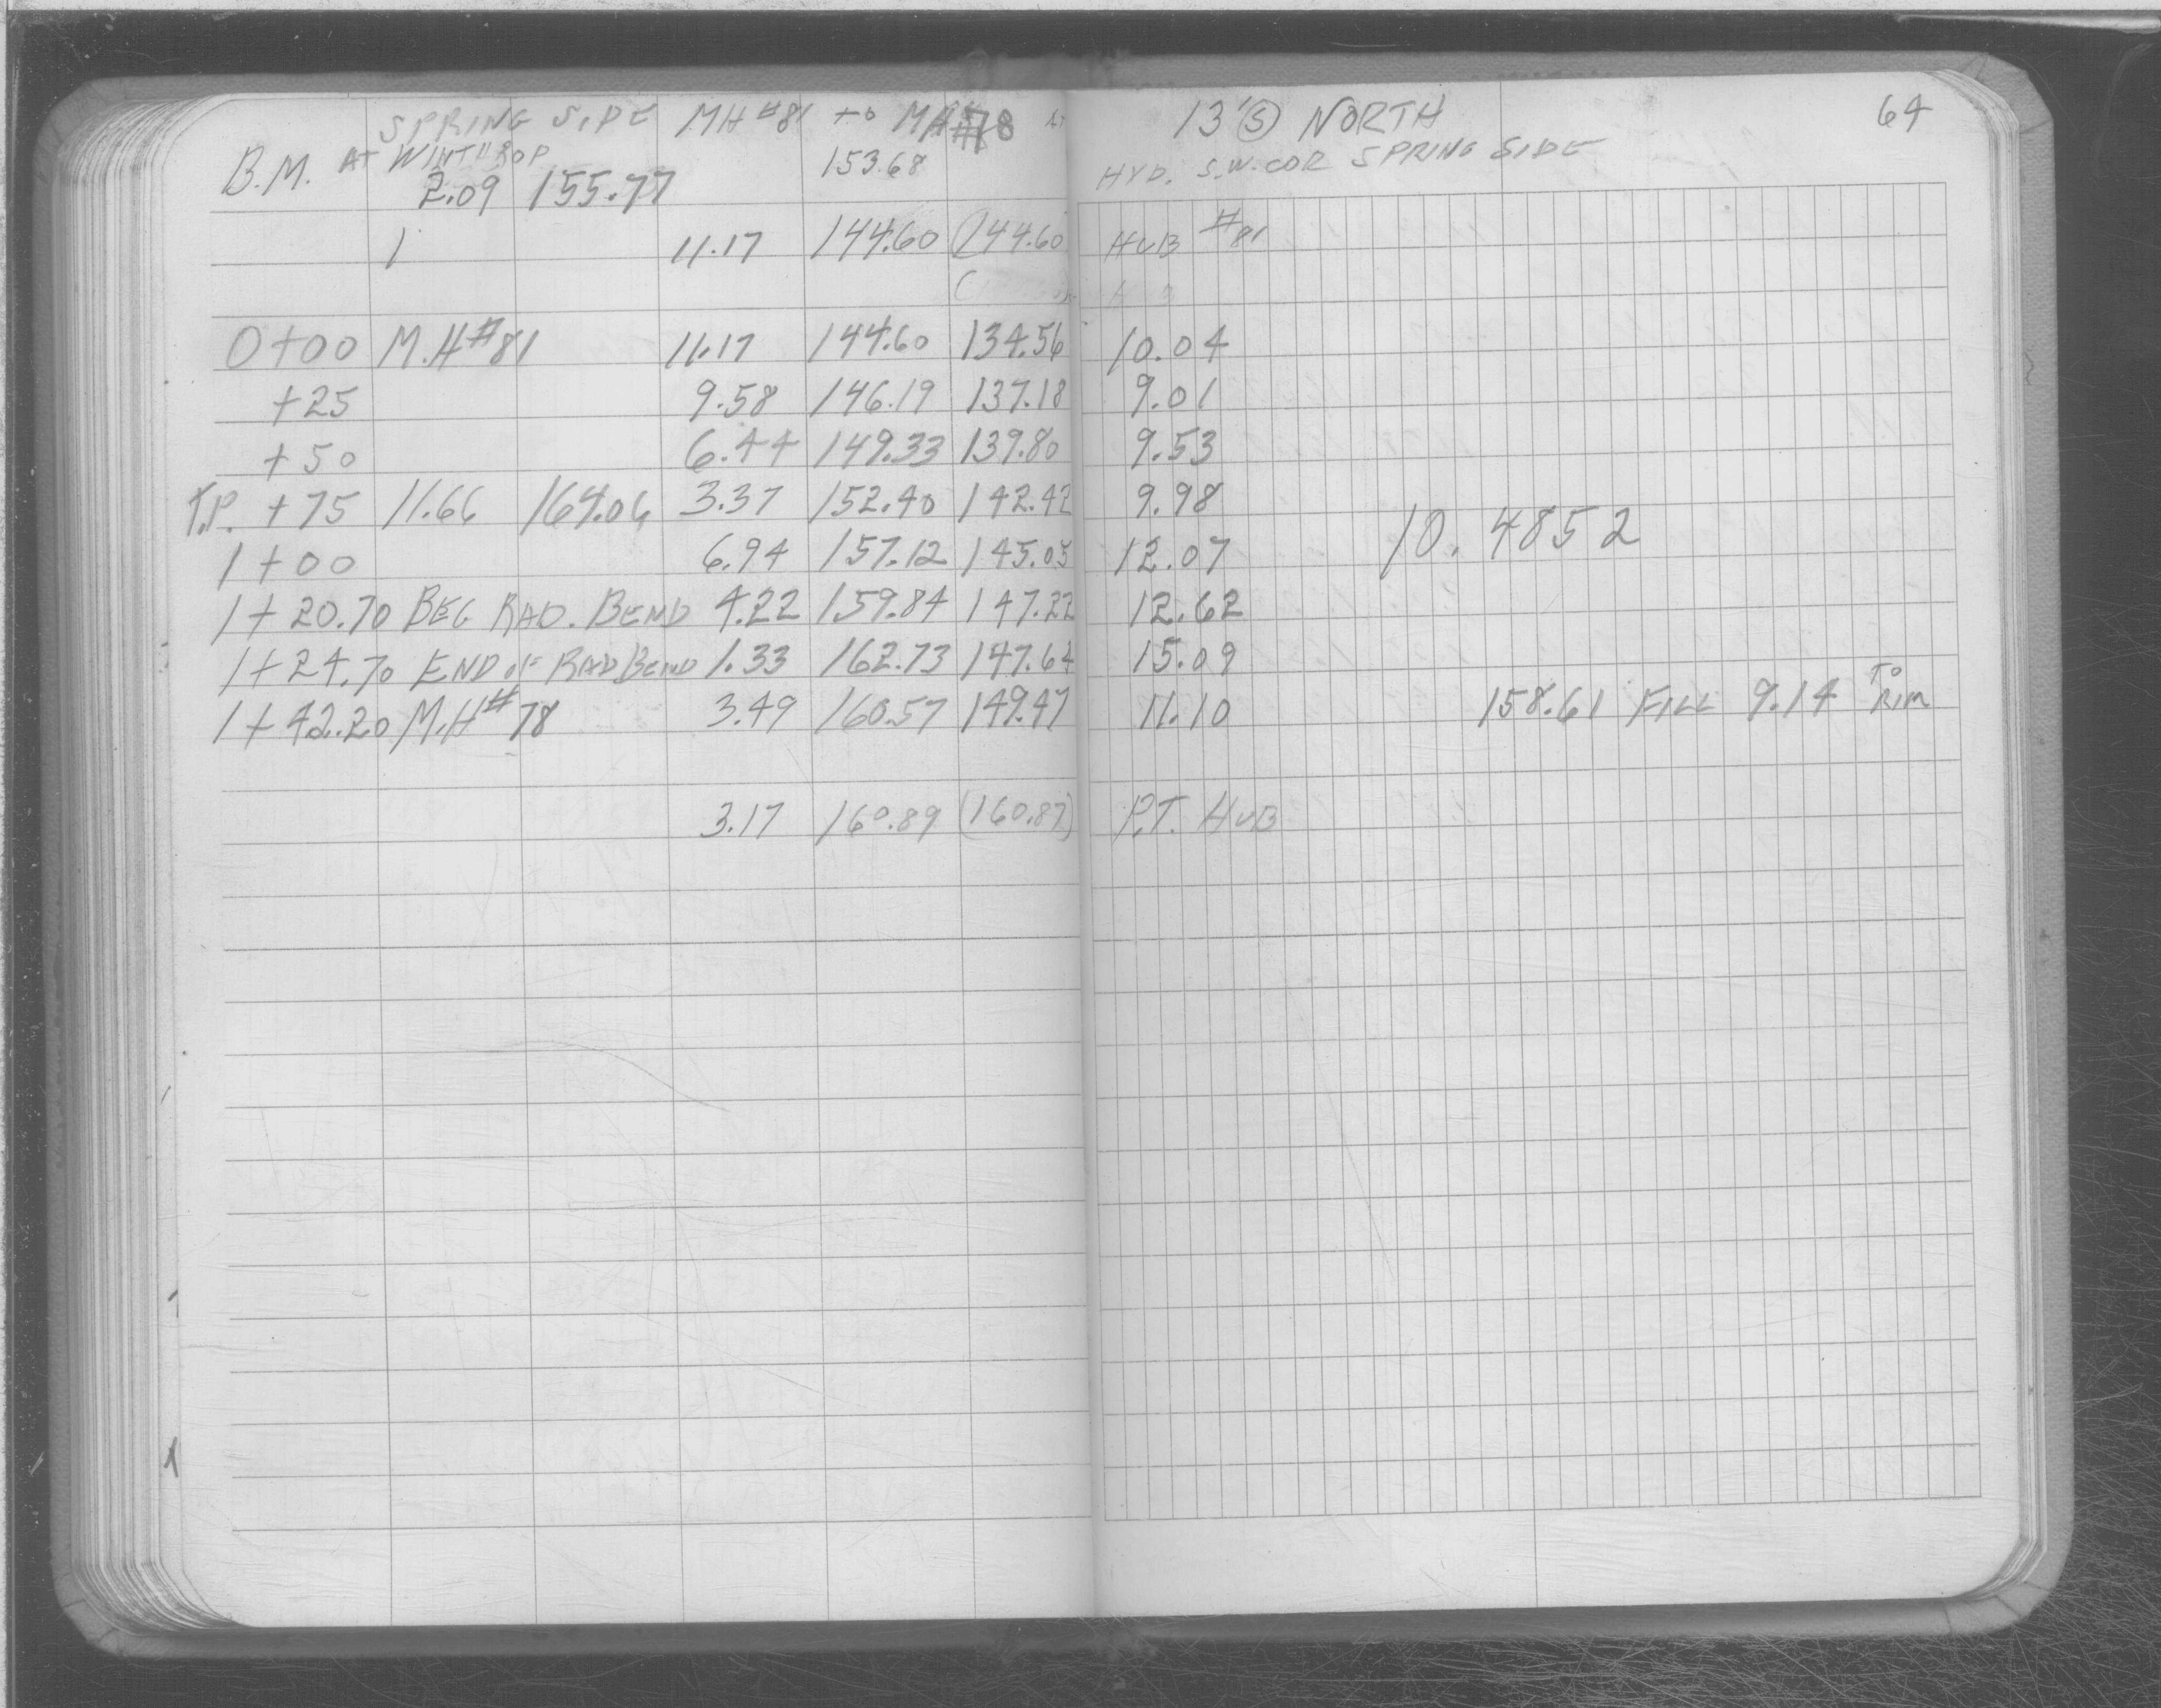 SPRING SIDE MH #81 to MH #78 13' Ⓢ NORTH 64
B.M. AT WINTHROP 153.68 HYD. S.W. COR SPRING SIDE
2.09 155.77
1 11.17 144.60 (144.60 HUB #81
0+00 M.H #81 11.17 144.60 134.56 10.04
+25 9.58 146.19 137.18 9.01
+50 6.44 149.33 139.80 9.53
T.P. +75 11.66 164.06 3.37 152.40 142.42 9.98
10.4852
1+00 6.94 157.12 145.05 12.07
1+20.70 BEG RAD. BEND 4.22 159.84 147.22 12.62
1+24.70 END OF RAD BEND 1.33 162.73 147.64 15.09
1+42.20 M.H #78 3.49 160.57 149.47 11.10 158.61 FILL 9.14 TO RIM
3.17 160.89 (160.87) P.T. HUB